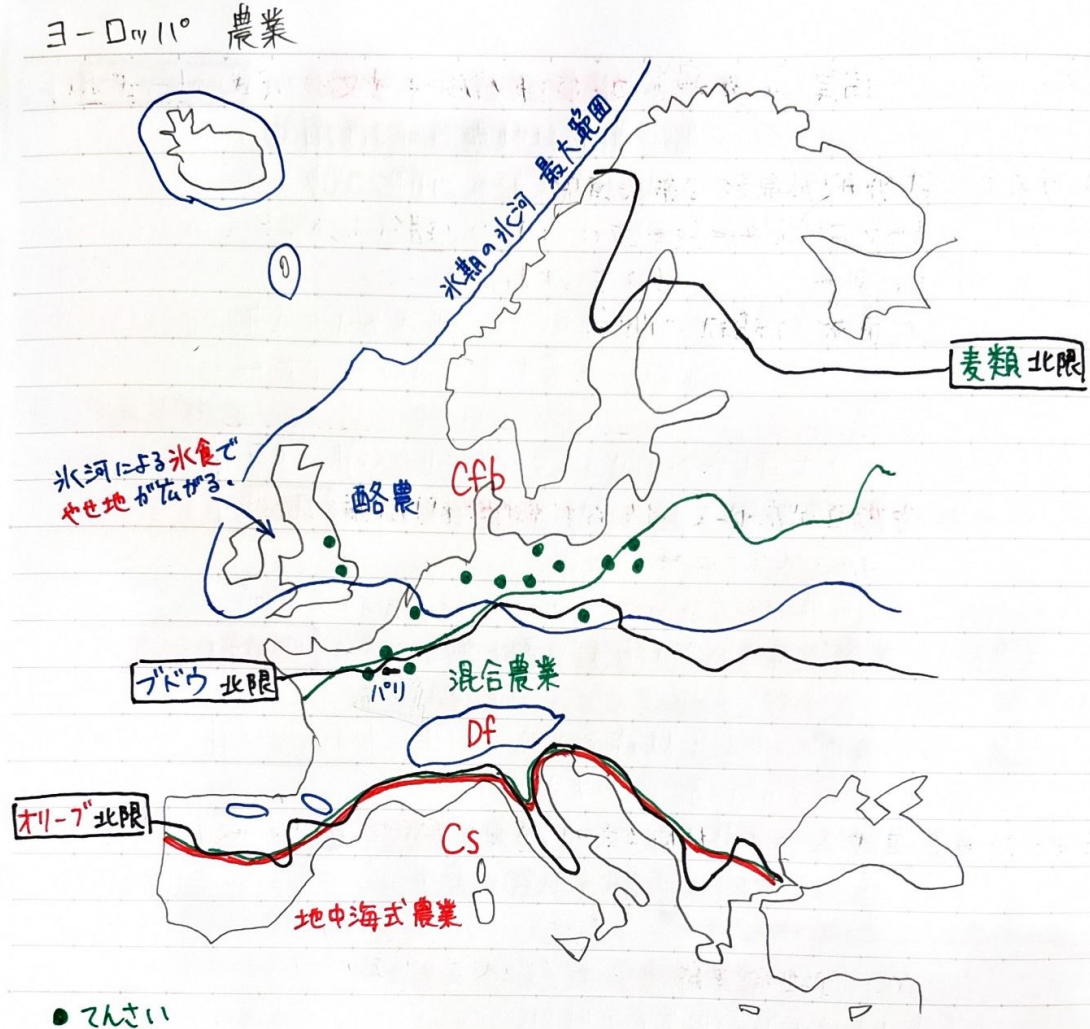 ヨーロッパ 農業
氷期の氷河 最大範囲
麦類北限
氷河による氷食で
やせ地が広がる.
酪農
Cfb
ブドウ 北限
パリ
混合農業
Df
オリーブ北限
Cs
地中海式農業
● てんさい